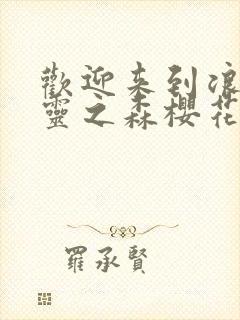 歡迎来到浪
靈之森櫻花
羅承賢